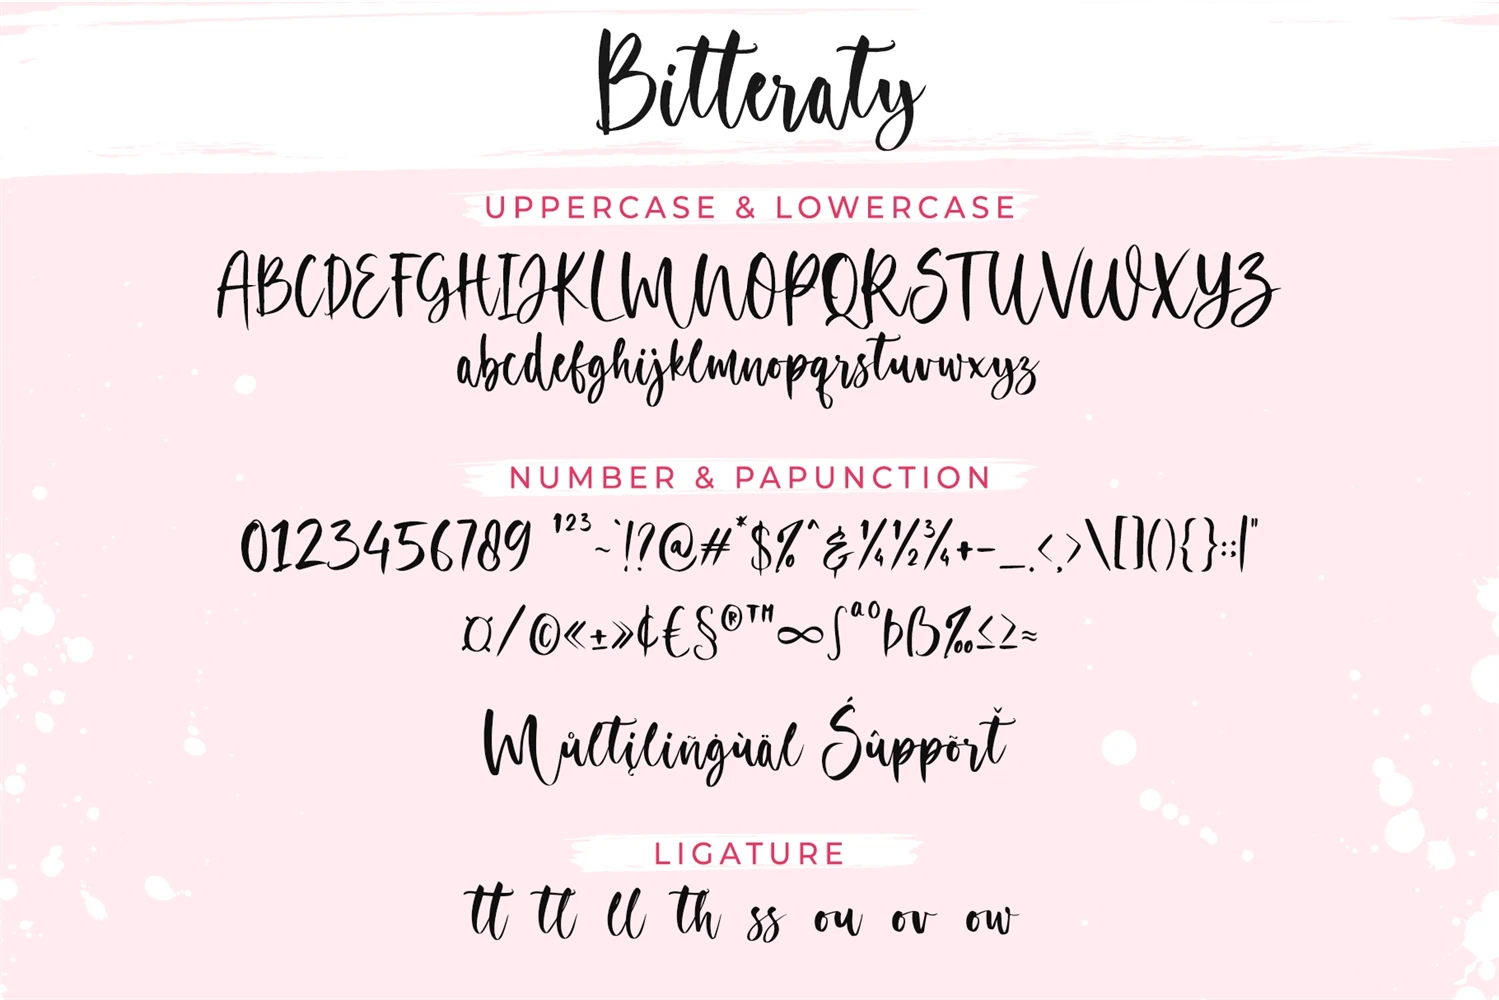 Bitteraty
UPPERCASE & LOWERCASE
ABCDEFGHIJKLMNOPQRSTUVWXYZ
abcdefghijklmnopqrstuvwxyz
NUMBER & PAPUNCTION
0123456789 ¹²³~`!?@#*$%^&¼½¾+-_.<,>\[](){}:;|"
¤/©«±»¢€§®™∞∫ªºÞß‰≤≥≈
Můltįliñġùäl Śûppõrť
LIGATURE
tt tl ll th ss ou ov ow